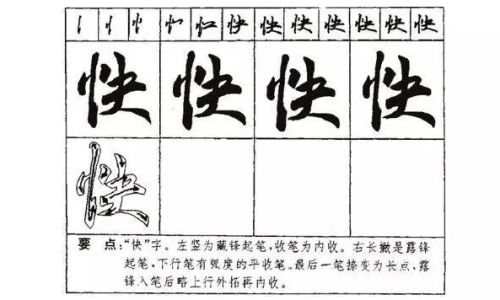 快 快 快 快 快
快 快 快 快
快
要 点:“快”字。左竖为藏锋起笔,收笔为内收。右长撇是露锋
起笔,下行笔有弧度的平收笔。最后一笔捺变为长点,露
锋入笔后略上行外拓再内收。